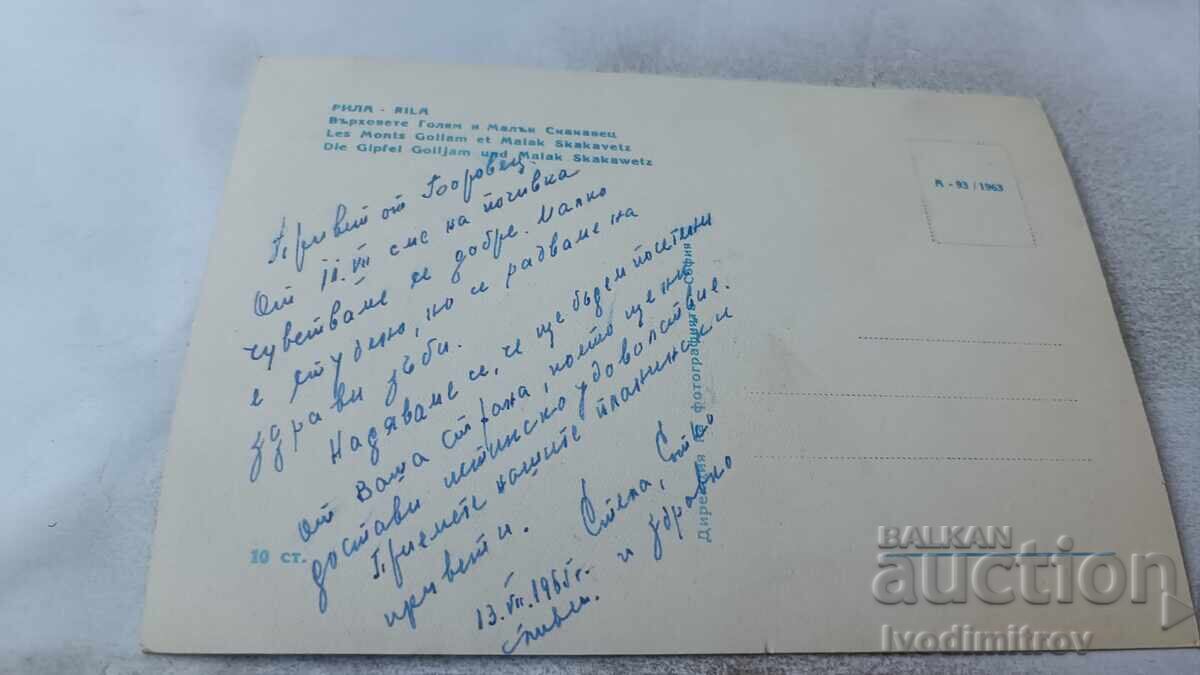 РИЛА - RILA
Върховете Голям и Малък Скакавец
Les Monts Goliam et Malak Skakavetz
Die Gipfel Goljam und Malak Skakawetz
А - 93 / 1963
Привет от Боровец.
От 11.VII сме на почивка
чувстваме се добре. Малко
е студено, но се радваме на
здрави зъби.
Надяваме се, че ще бъдем посетени
от Ваша страна, което ще ни
достави истинско удоволствие.
Приемете нашите планински
привети. Стела,
13.VII.1965г. и здравко
10 ст.
Дирекция на фотографията София
BALKAN
auction
Ivodimitrov